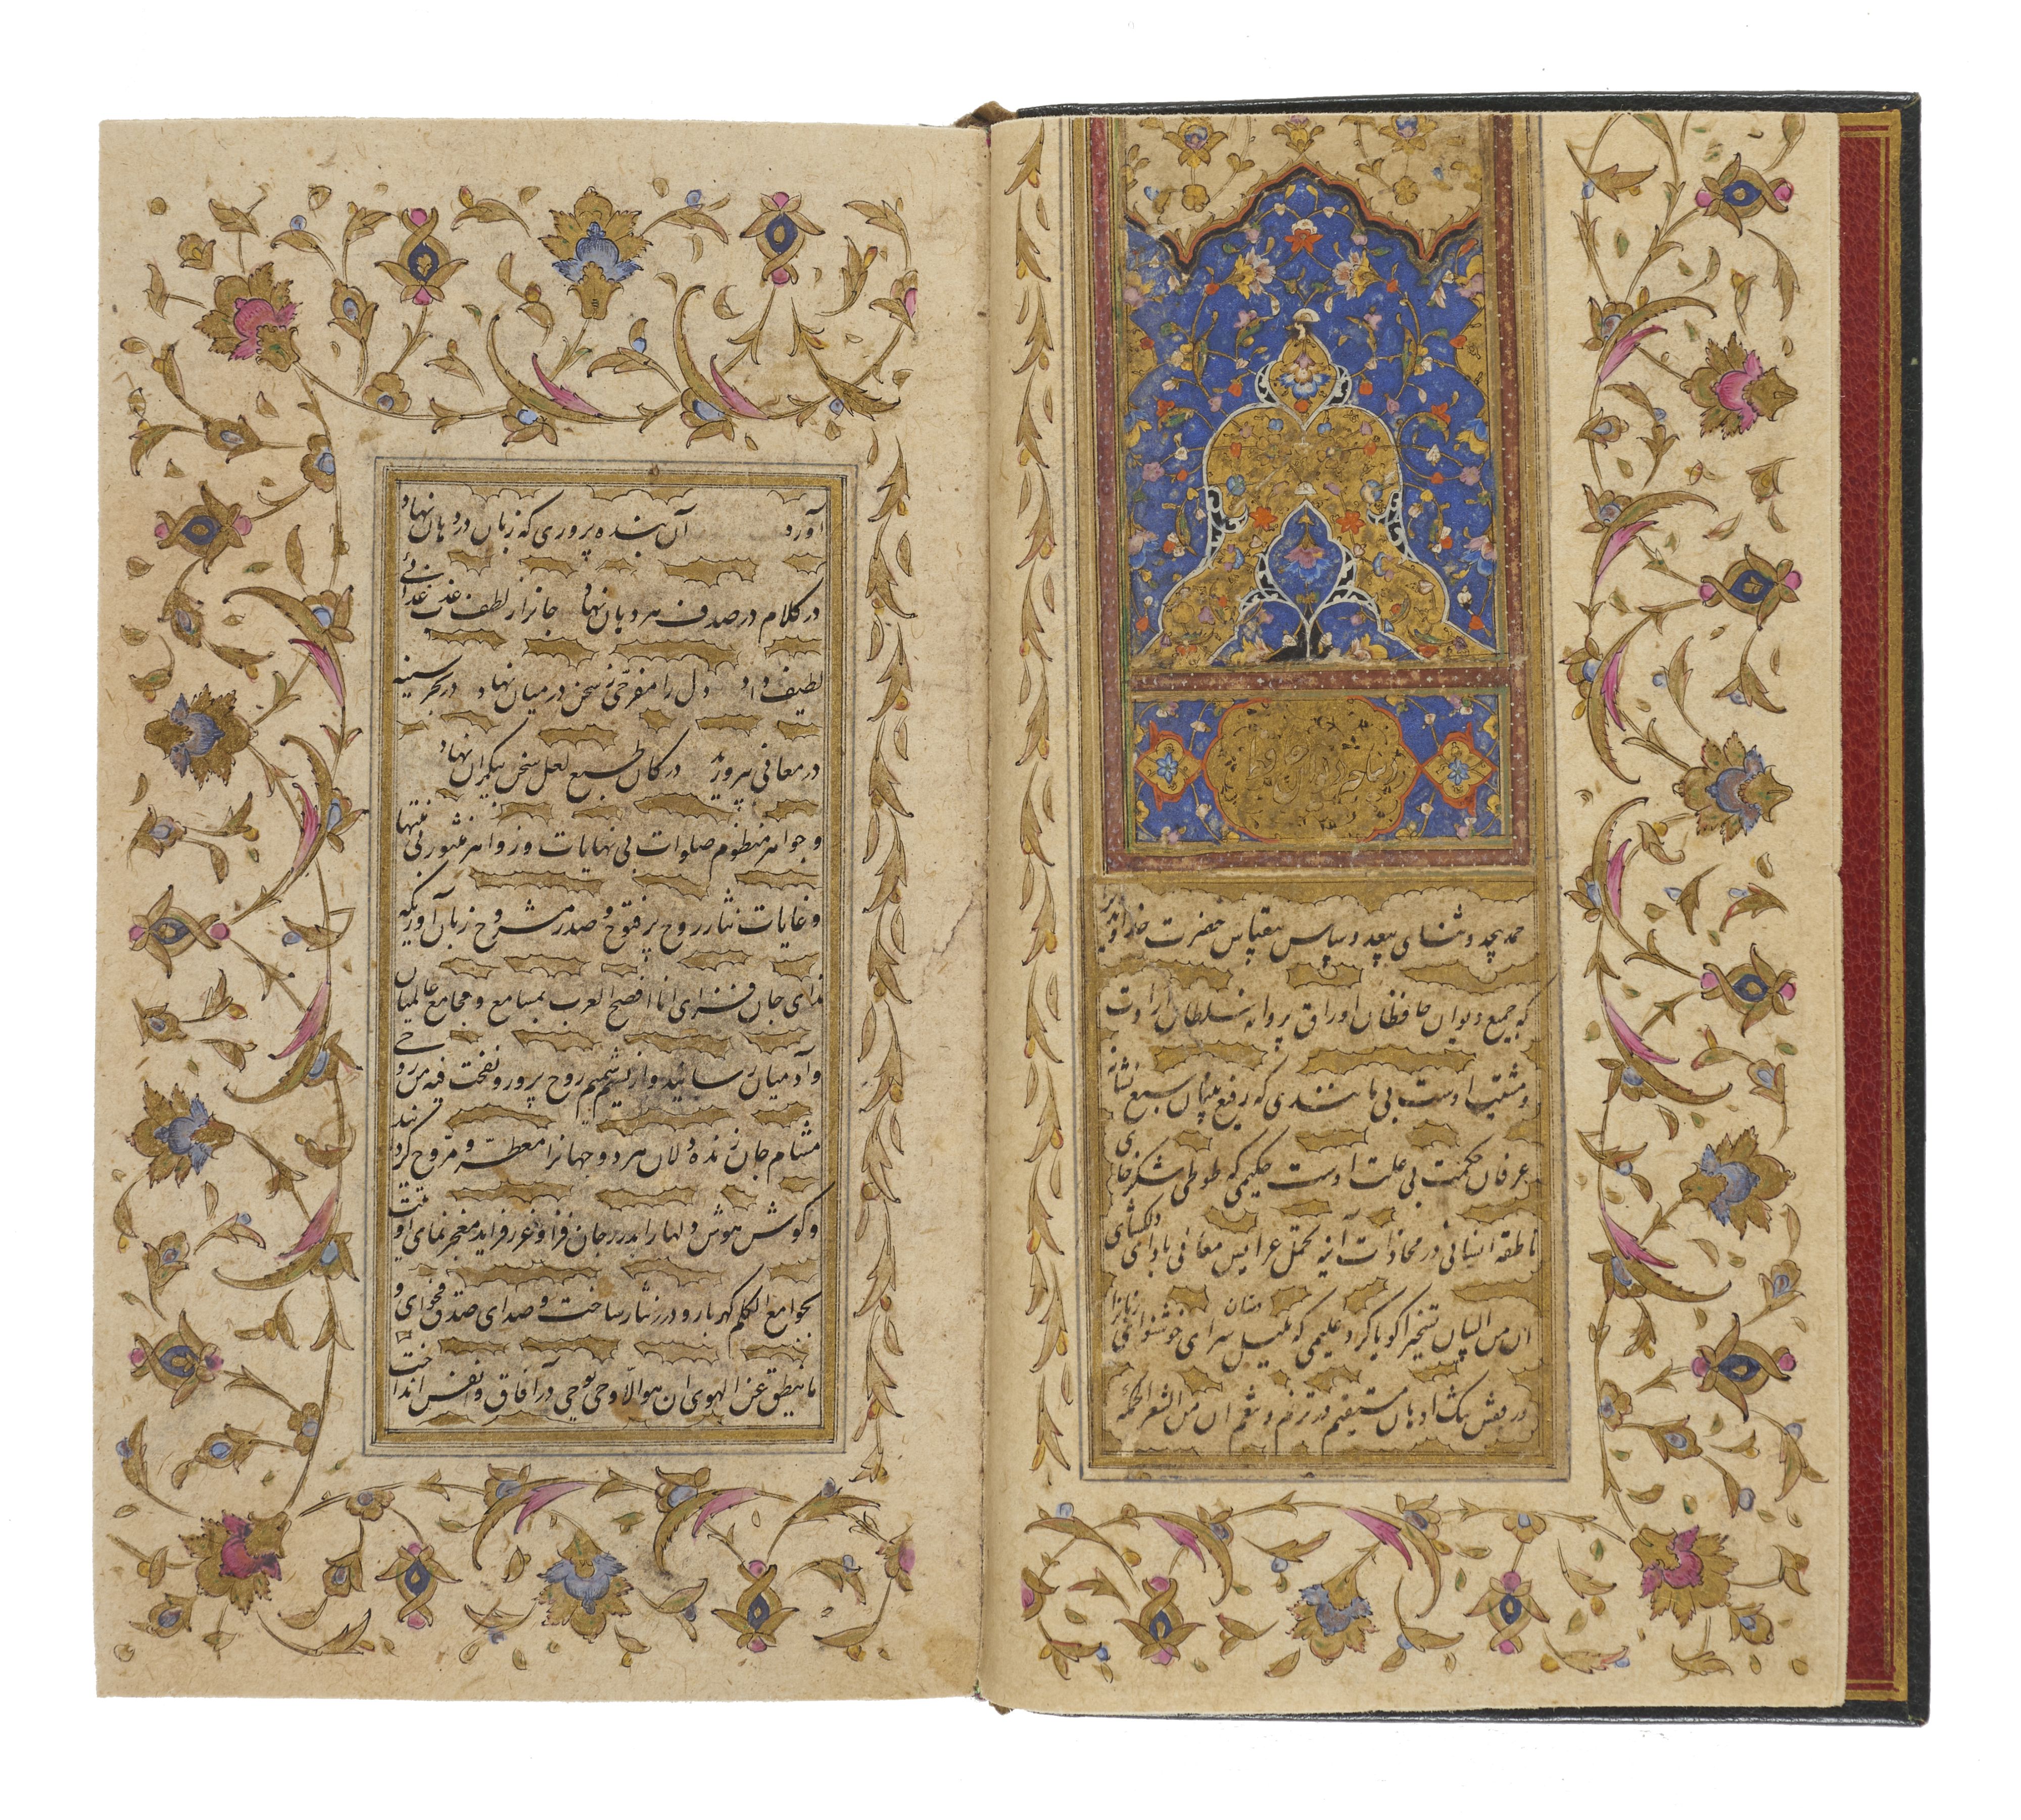 دیباچه دیوان حافظ
حمد بیحد و ثنای بیعد و سپاس بیقیاس حضرت خداوندیرا
که جمع دیوان حافظان اوراق پروانه سلطان ارادت
و مشیت اوست بی مانندی که رفع بنیان سبع نشانه
عرفان حکمت بی علت اوست حکیمی که طوطی شکرخای
ناطقه انسانی در محاذات آینه تحمل عرایس معانی بادای دلکشای
ان من البیان لسحرا گویا کرد علیمی که بلبل دستان سرای خوشنوای زبانرا
در قفس تنک دهان مستقیم در ترنم و تنغم ان من الشعر لحکمة
آورد آن بنده پروری که زبان در دهان نهاد
در کلام در صدف هر دهان نهاد جانرا ز لطف عذب غذائی
لطیف داد دل را مفرحی ز سخن در میان نهاد در بحر سینه
در معانی بپرورید در کان طبع لعل سخن بیکران نهاد
و جواهر منظوم صلوات بی نهایات و زواهر منثور بی منتها
و غایات نثار روح پر فتوح و صدر مشروح زبان آوریکه
ندای جان فزای انا افصح العرب بمسامع و مجامع عالمیان
و آدمیان رسانید و از نسیم شمیم روح پرور و نفخت فیه من روحی
مشام جان زنده دلان هر دو جهانرا معطر و مروح کردند
و کوش هوش دلها را بدرر جان فزا و غرر فراید معجز نمای اوتیت
بجوامع الکلم کهربار و درر نثار ساخت و صدای صدق فحوای و
ما ینطق عن الهوی ان هو الا وحی یوحی در آفاق و انفس انداخت